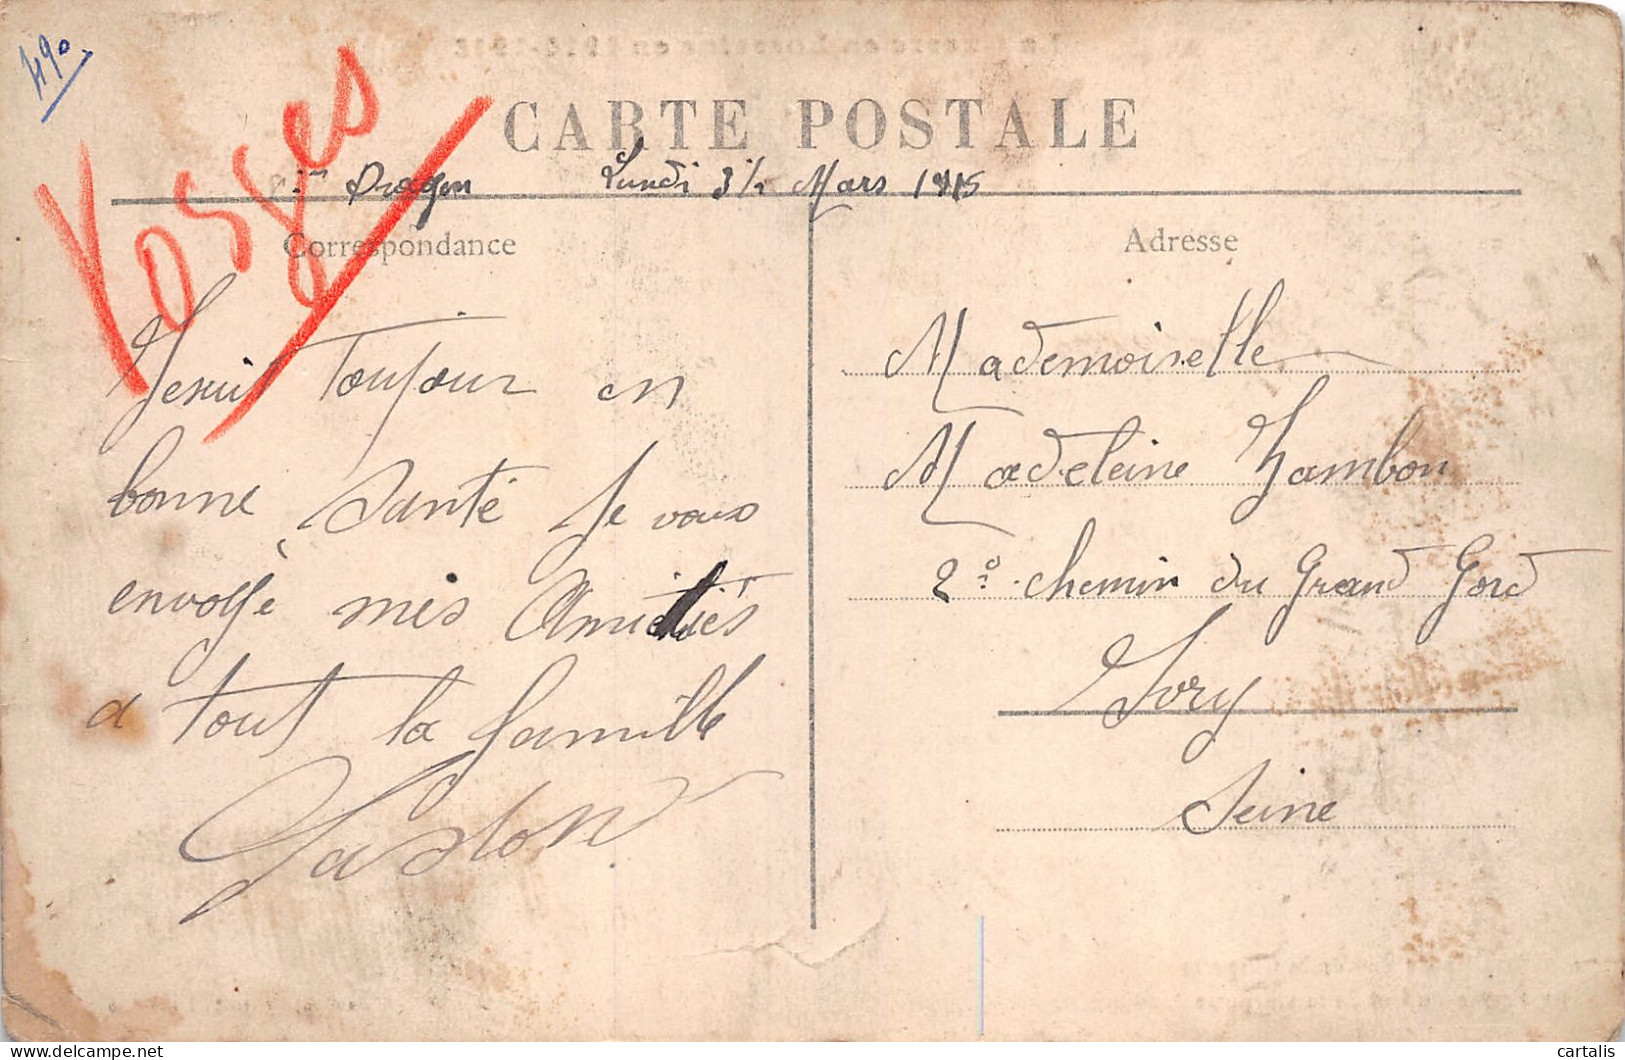 490
Vosges
CARTE POSTALE
Dragon Lundi Mars 1915
Correspondance
Adresse
Je suit Toujour en
bonne Santé Je vous
envoyé mes Amitiés
a tout la famille
Gaston
Mademoiselle
Madeleine Zambon
2 chemin du Grand Gord
Ivry
Seine
cartalis
delcampe.net